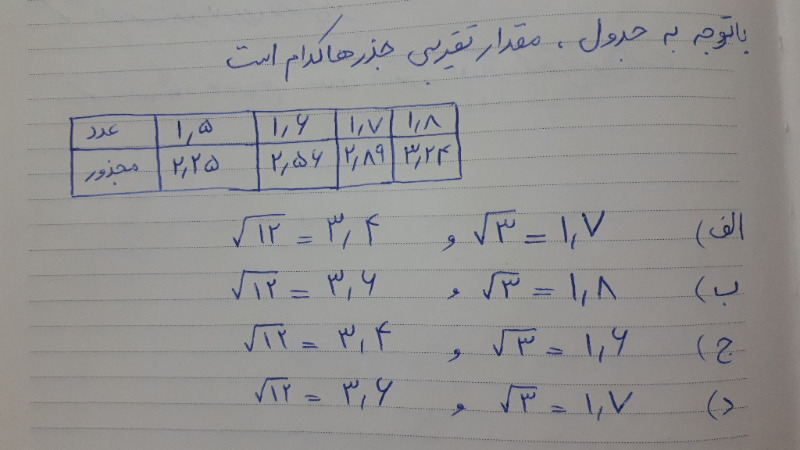 باتوجه به جدول، مقدار تقریبی جذرها کدام است
عدد ۱٫۵ ۱٫۶ ۱٫۷ ۱٫۸
مجذور ۲٫۲۵ ۲٫۵۶ ۲٫۸۹ ۳٫۲۴
الف) √۳ = ۱٫۷ و √۱۲ = ۳٫۴
ب) √۳ = ۱٫۸ و √۱۲ = ۳٫۶
ج) √۳ = ۱٫۶ و √۱۲ = ۳٫۴
د) √۳ = ۱٫۷ و √۱۲ = ۳٫۶